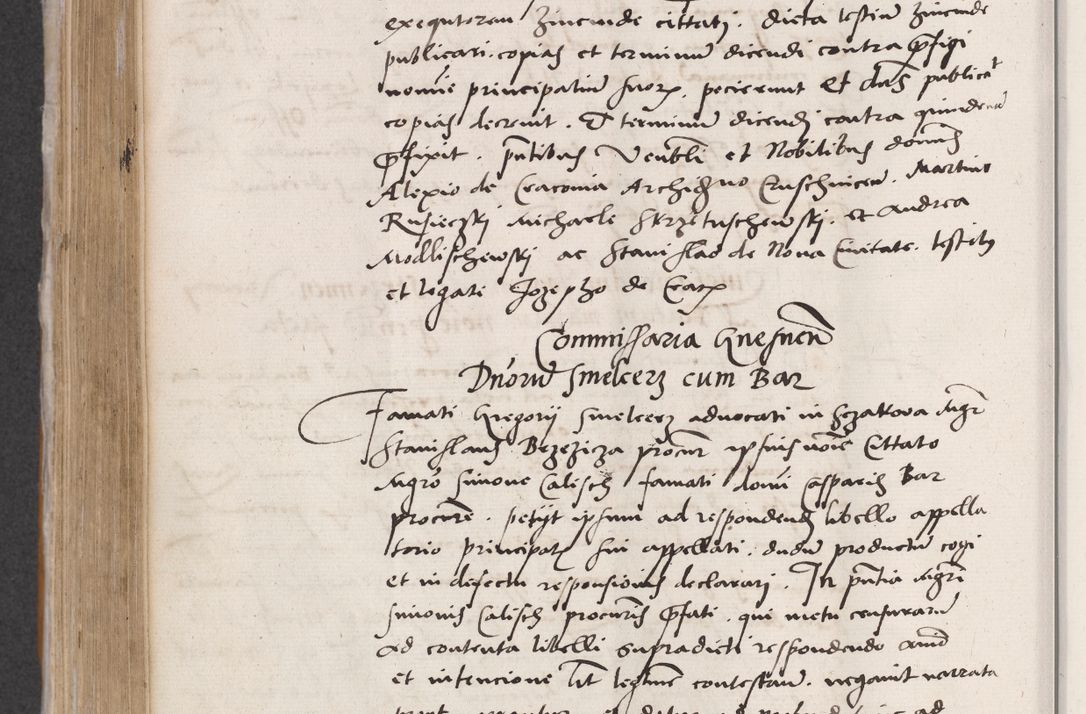 exequtorem hincinde cittati. dicta testium hincinde
publicari. copias et terminum dicendi contra pfigi
nomine principalium suorx. pecierunt Et dns publicat
copias decrevit. Et terminum dicendi contra quindenam
pfixit. pntibus Venbli et Nobilibus dominis
Alexio de Cracovia Archidno Cruschvicen. Martino
Rusieczski Michaele Skrzetuschewski. et Andrea
Modlischewski ac Stanislao de Nova Civitate. testibus
et legati Jozepho de Crac
Commissaria Gnesnen
Dnorum Smelcerz cum Bar
Famati Gregorij Smelcerz advocati in Mgr
Stanislaus Bezezicza procur ipsius noie Cittato
Mgro Simone Calisch famati domi Casparis Bar
procure. petijt ipsum ad respondendum libello appella
torio principal sui appellati. dudum productum cogi
et in defectu responsionis declarari. In pntia Mgri
Simonis Calisch procuris pfati. qui metu censurarum
ad contenta libelli supradicti respondendo animo
et intencione lit legittime contestan. negavit narrata